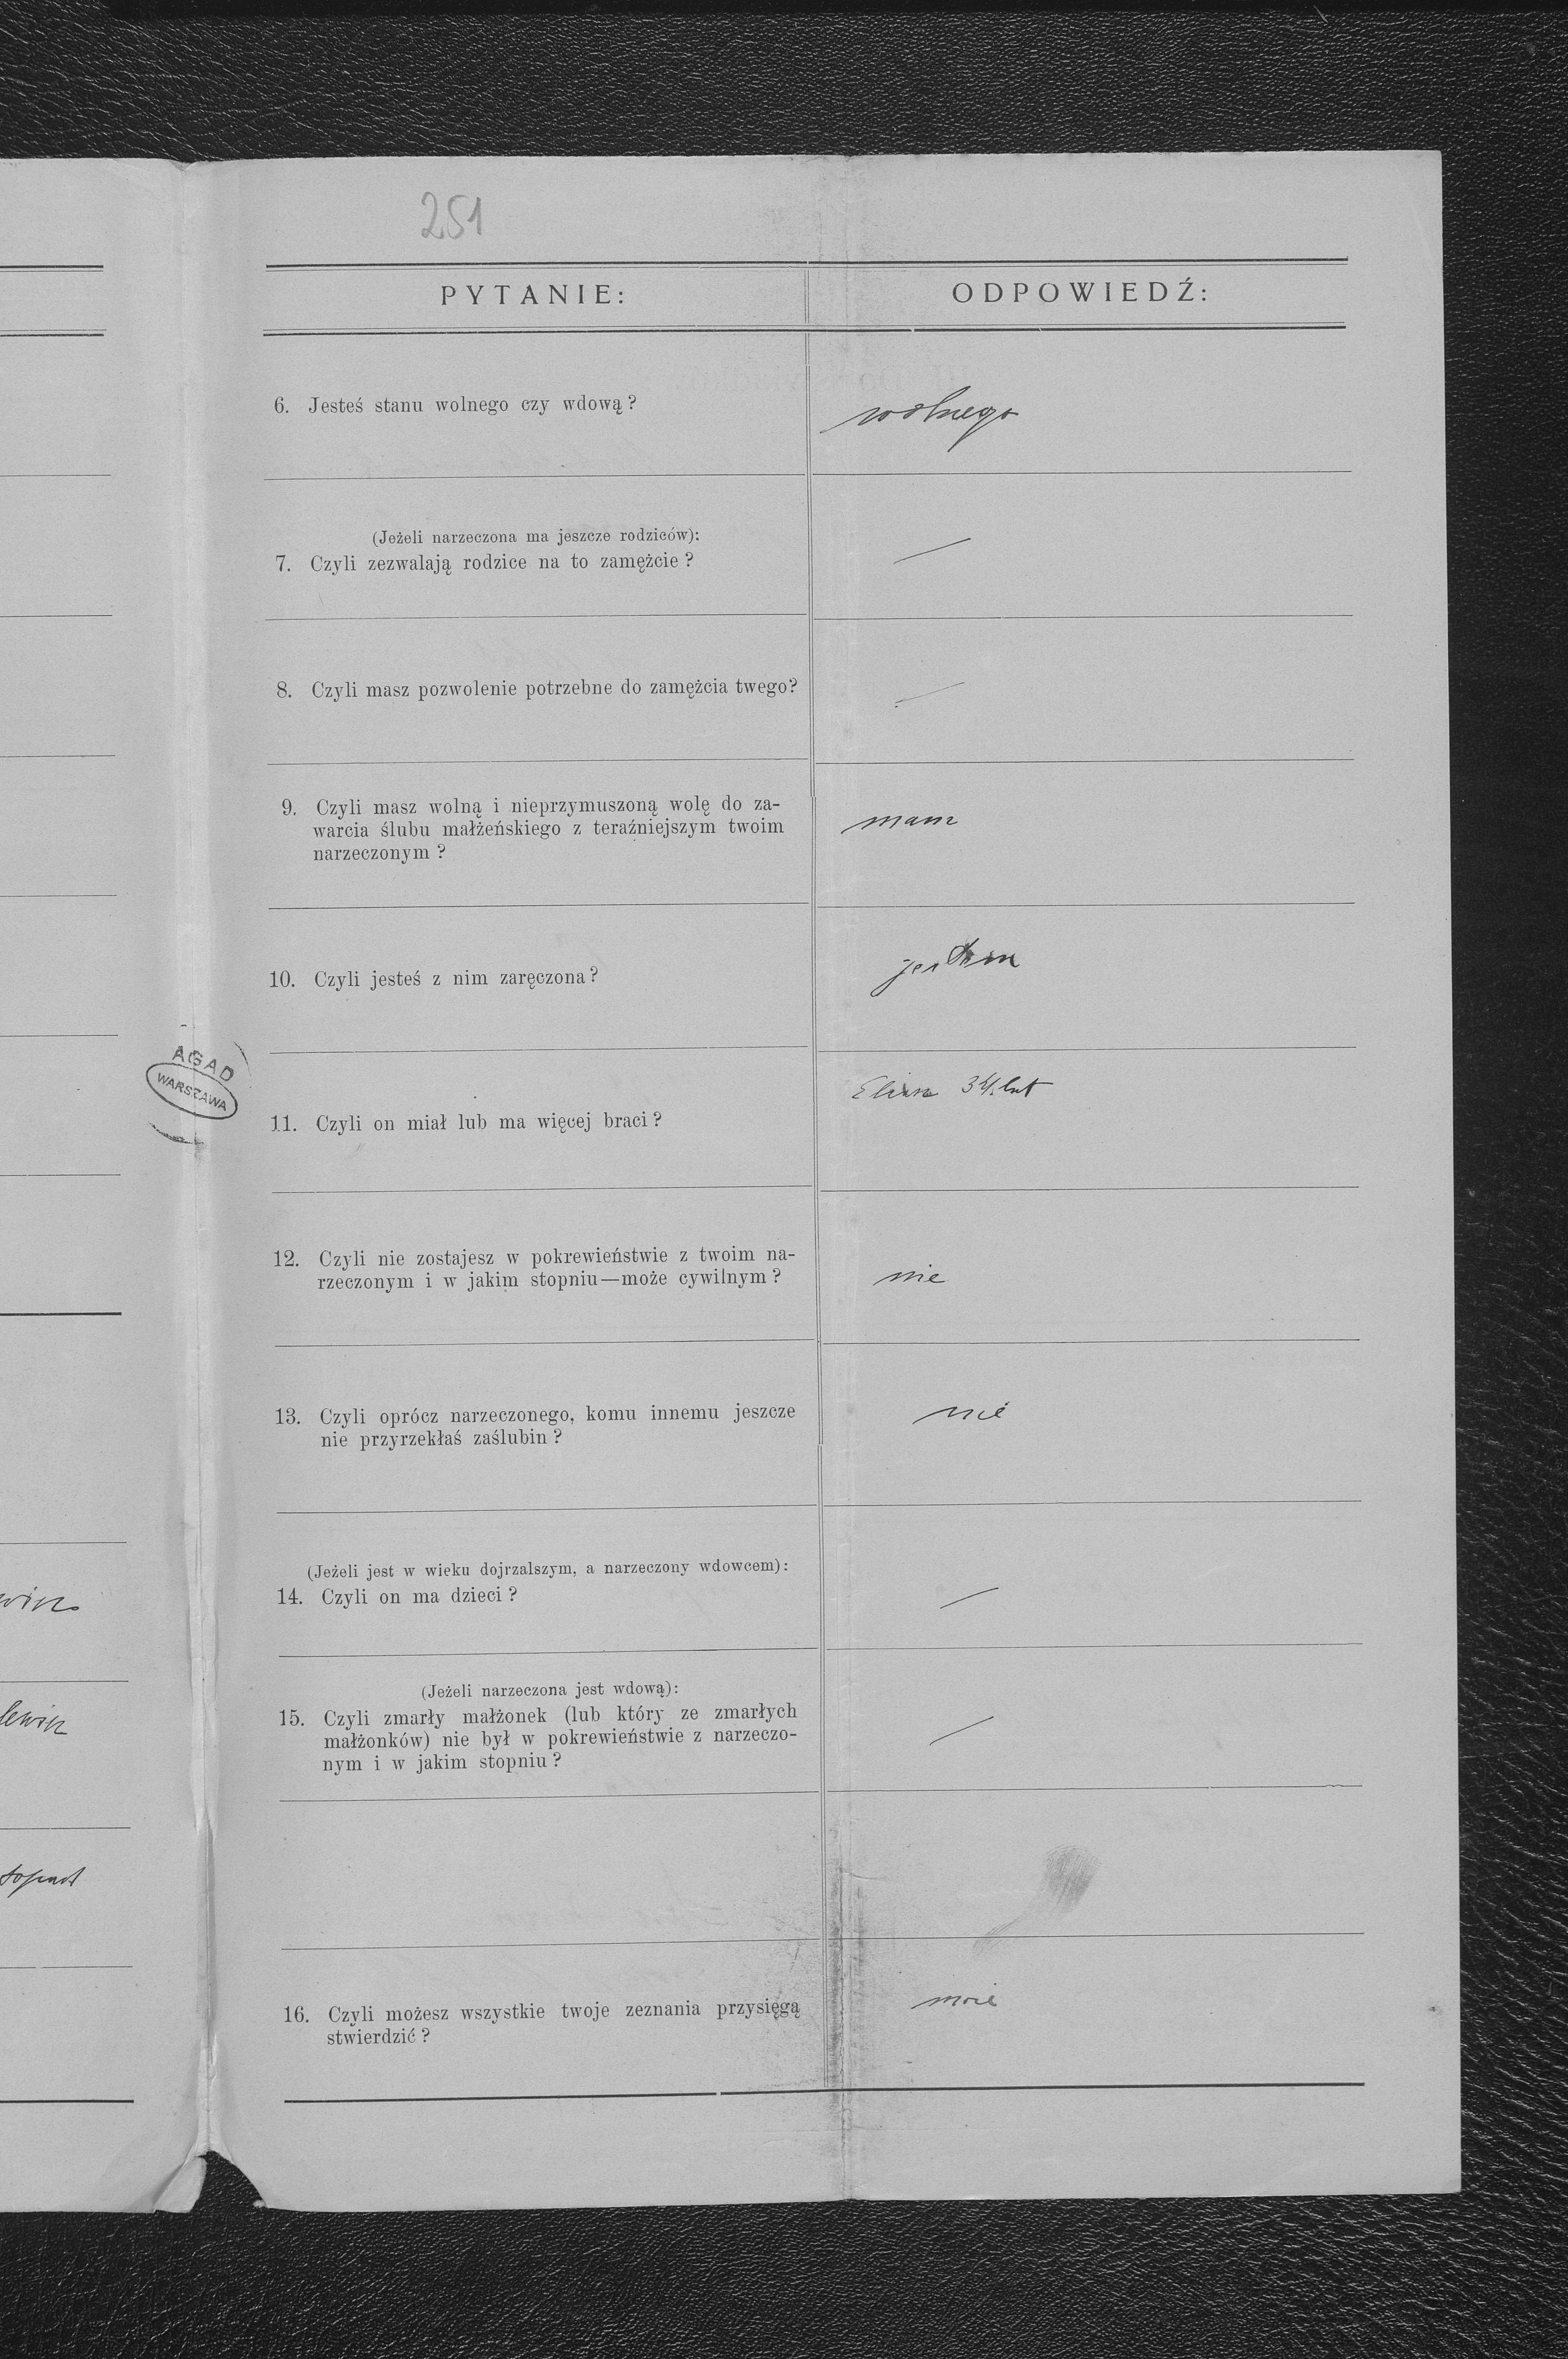 251
PYTANIE: ODPOWIEDŹ:
6. Jesteś stanu wolnego czy wdową? wolnego
(Jeżeli narzeczona ma jeszcze rodziców):
7. Czyli zezwalają rodzice na to zamężcie? —
8. Czyli masz pozwolenie potrzebne do zamężcia twego? —
9. Czyli masz wolną i nieprzymuszoną wolę do za-
warcia ślubu małżeńskiego z teraźniejszym twoim mam
narzeczonym?
10. Czyli jesteś z nim zaręczona? jestem
AGAD
WARSZAWA
34 lat
11. Czyli on miał lub ma więcej braci?
12. Czyli nie zostajesz w pokrewieństwie z twoim na-
rzeczonym i w jakim stopniu—może cywilnym? nie
13. Czyli oprócz narzeczonego, komu innemu jeszcze nie
nie przyrzekłaś zaślubin?
(Jeżeli jest w wieku dojrzalszym, a narzeczony wdowcem):
14. Czyli on ma dzieci? —
(Jeżeli narzeczona jest wdową):
15. Czyli zmarły małżonek (lub który ze zmarłych
małżonków) nie był w pokrewieństwie z narzeczo- —
nym i w jakim stopniu?
16. Czyli możesz wszystkie twoje zeznania przysięgą
stwierdzić?